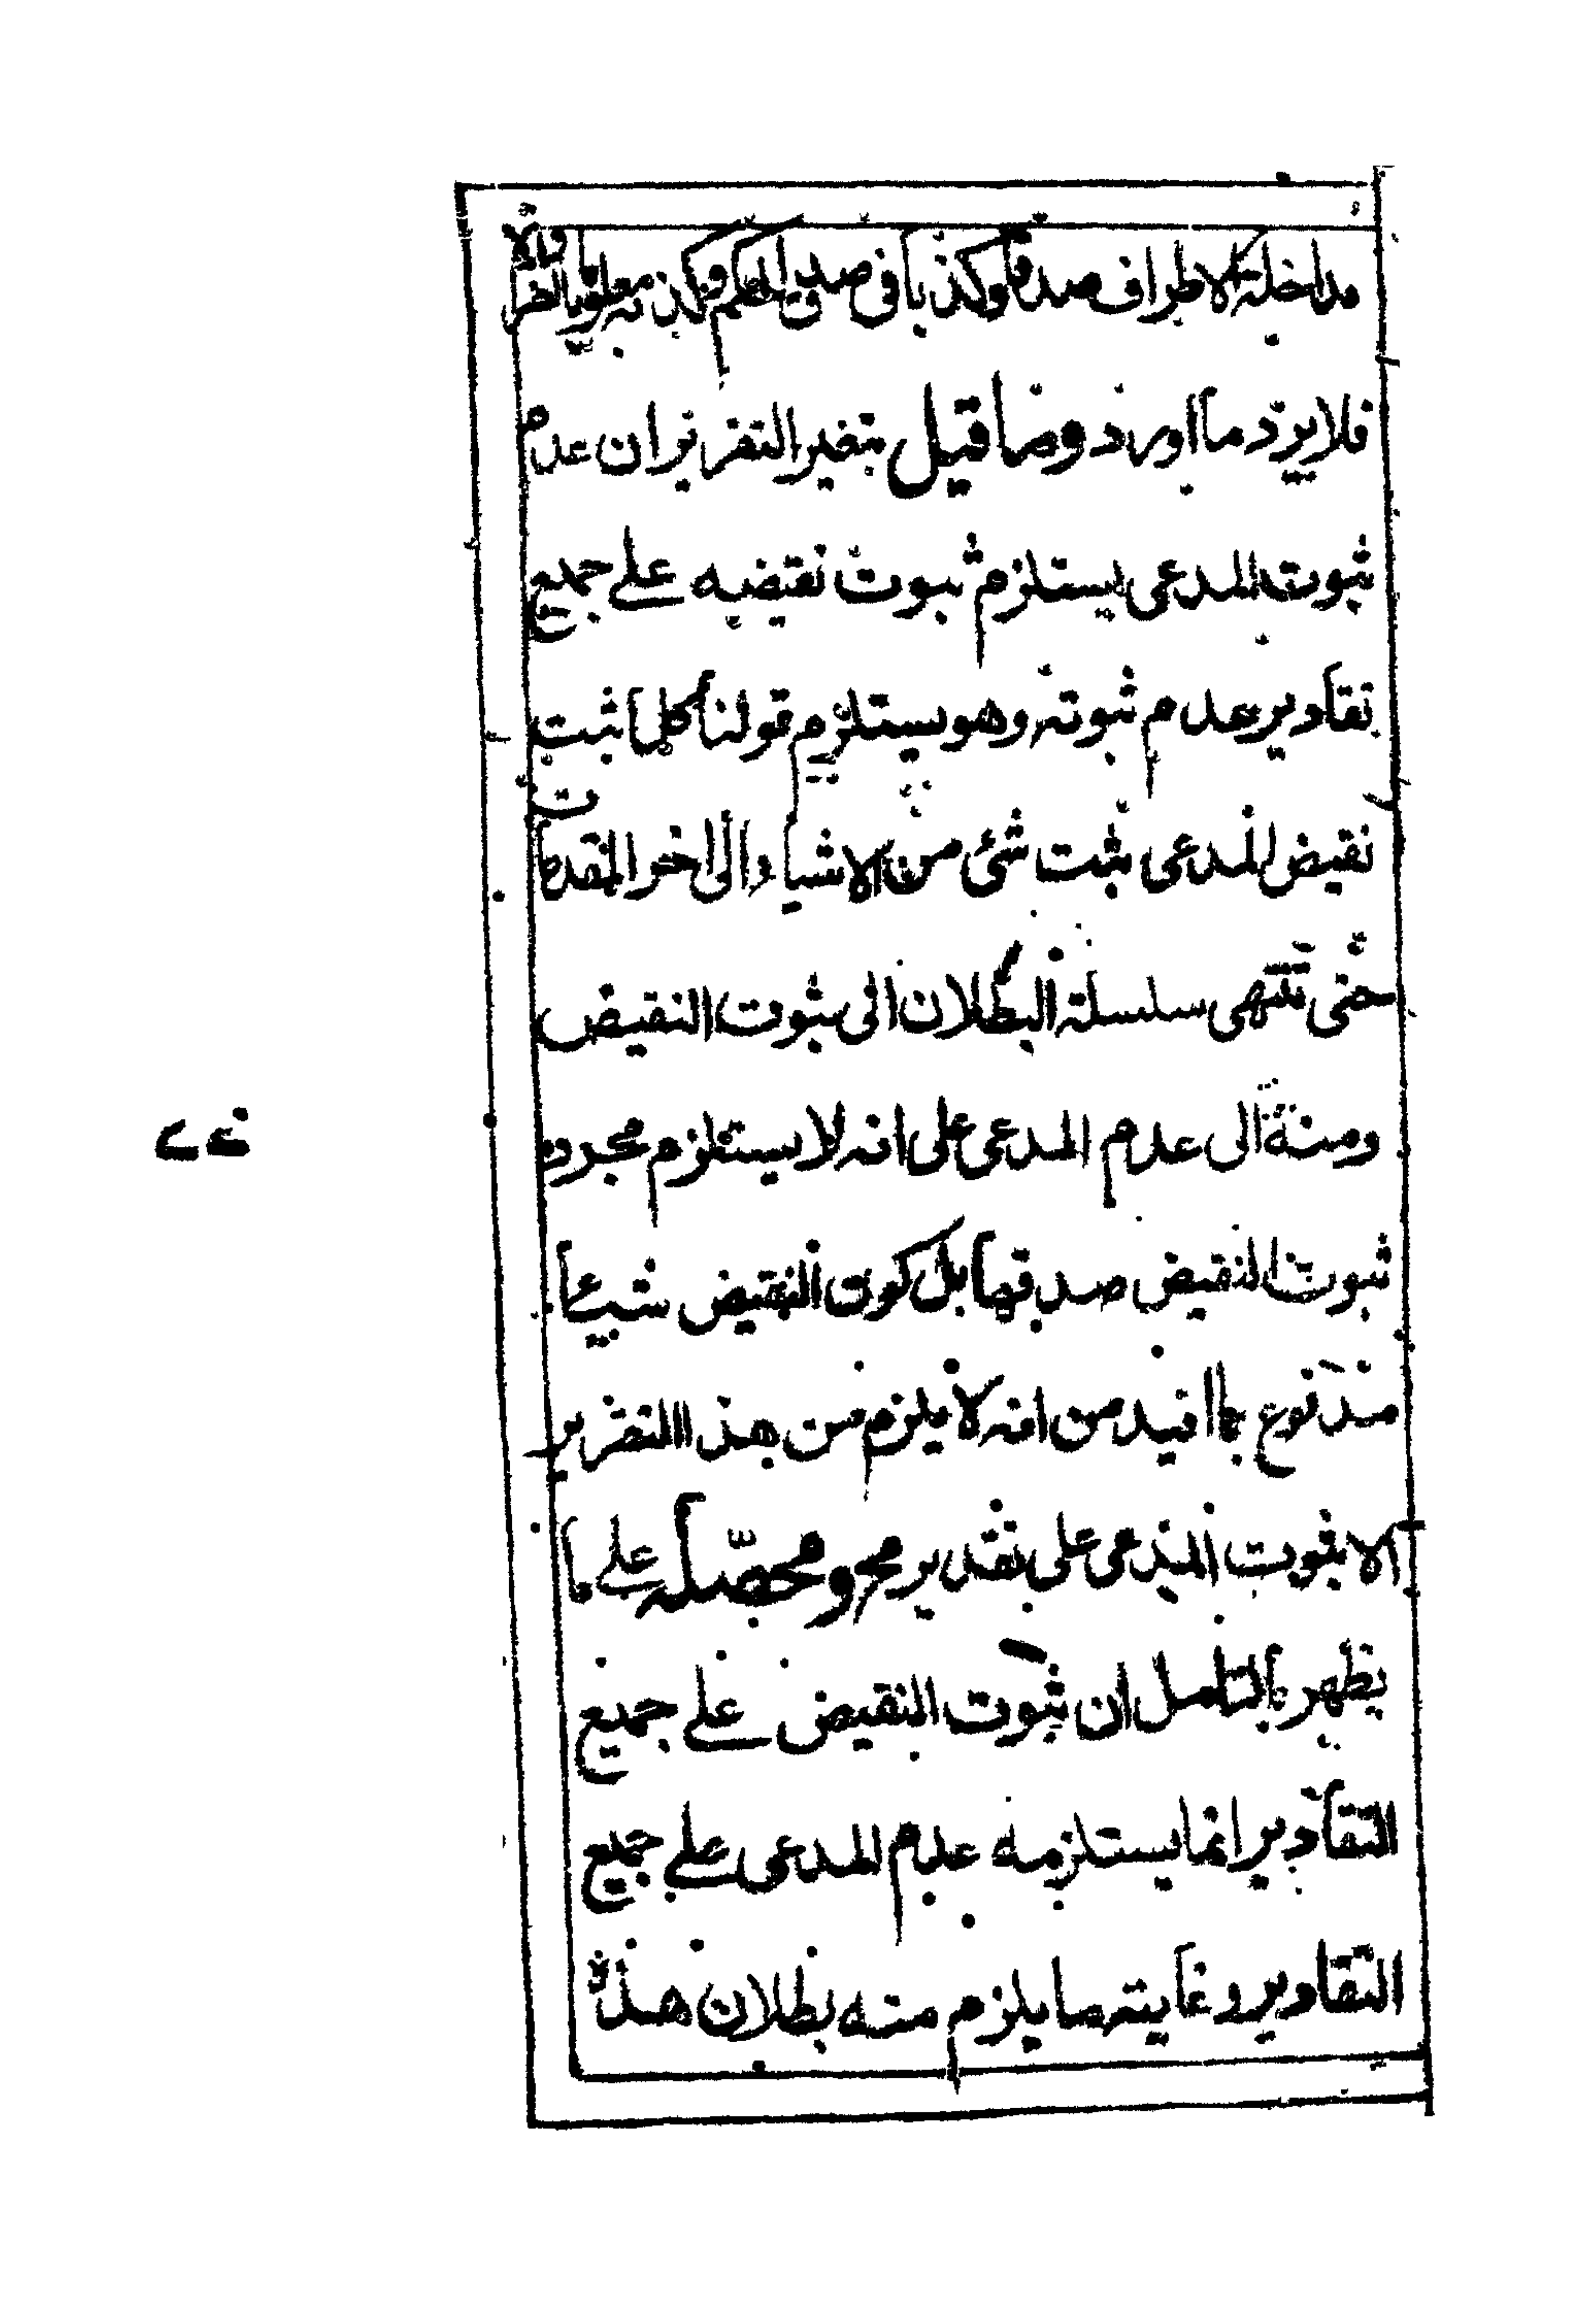 مداخلة الاطراف صدقا وكذبا في صدق الحكم وكذبه معلوم بالنظر
فلا يرد ما اورد وما قيل بتغير التقرير ان عدم
ثبوت المدعى يستلزم ثبوت نقيضه علے جميع
تقادير عدم ثبوته وهو يستلزم قولنا كلما ثبت
نقيض المدعى ثبت شئ من الاشياء والى اخر المقدمات
حتى تنتهى سلسلة البطلان الى ثبوت النقيض
ومنه الى عدم المدعى على انه لا يستلزم مجرد
ثبوت النقيض صدقها بل كون النقيض شيئا
مدفوع بما افيد من انه لا يلزم من هذا التقرير
الا ثبوت المدعى على تقدير مح ومحصّله علے ما
يظهر بالتامل ان ثبوت النقيض علے جميع
التقادير انما يستلزمه عدم المدعى علے جميع
التقادير وغايته ما يلزم منه بطلان هذا